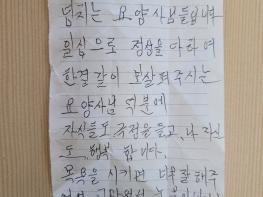 넘치는 요양사님들입니다
일심으로 정성을 다하여
한결같이 보살펴주시는
요양사님 덕분에
자식들도 걱정을 덜고, 나 자신
도 행복 합니다.
목욕을 시키면 너무 잘해주